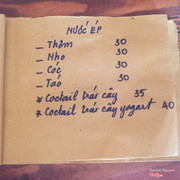 NƯỚC ÉP
_ Thơm 30
_ Nho 30
_ Cóc 30
_ Táo 30
* Coctail trái cây 35
* Coctail trái cây yogurt 40